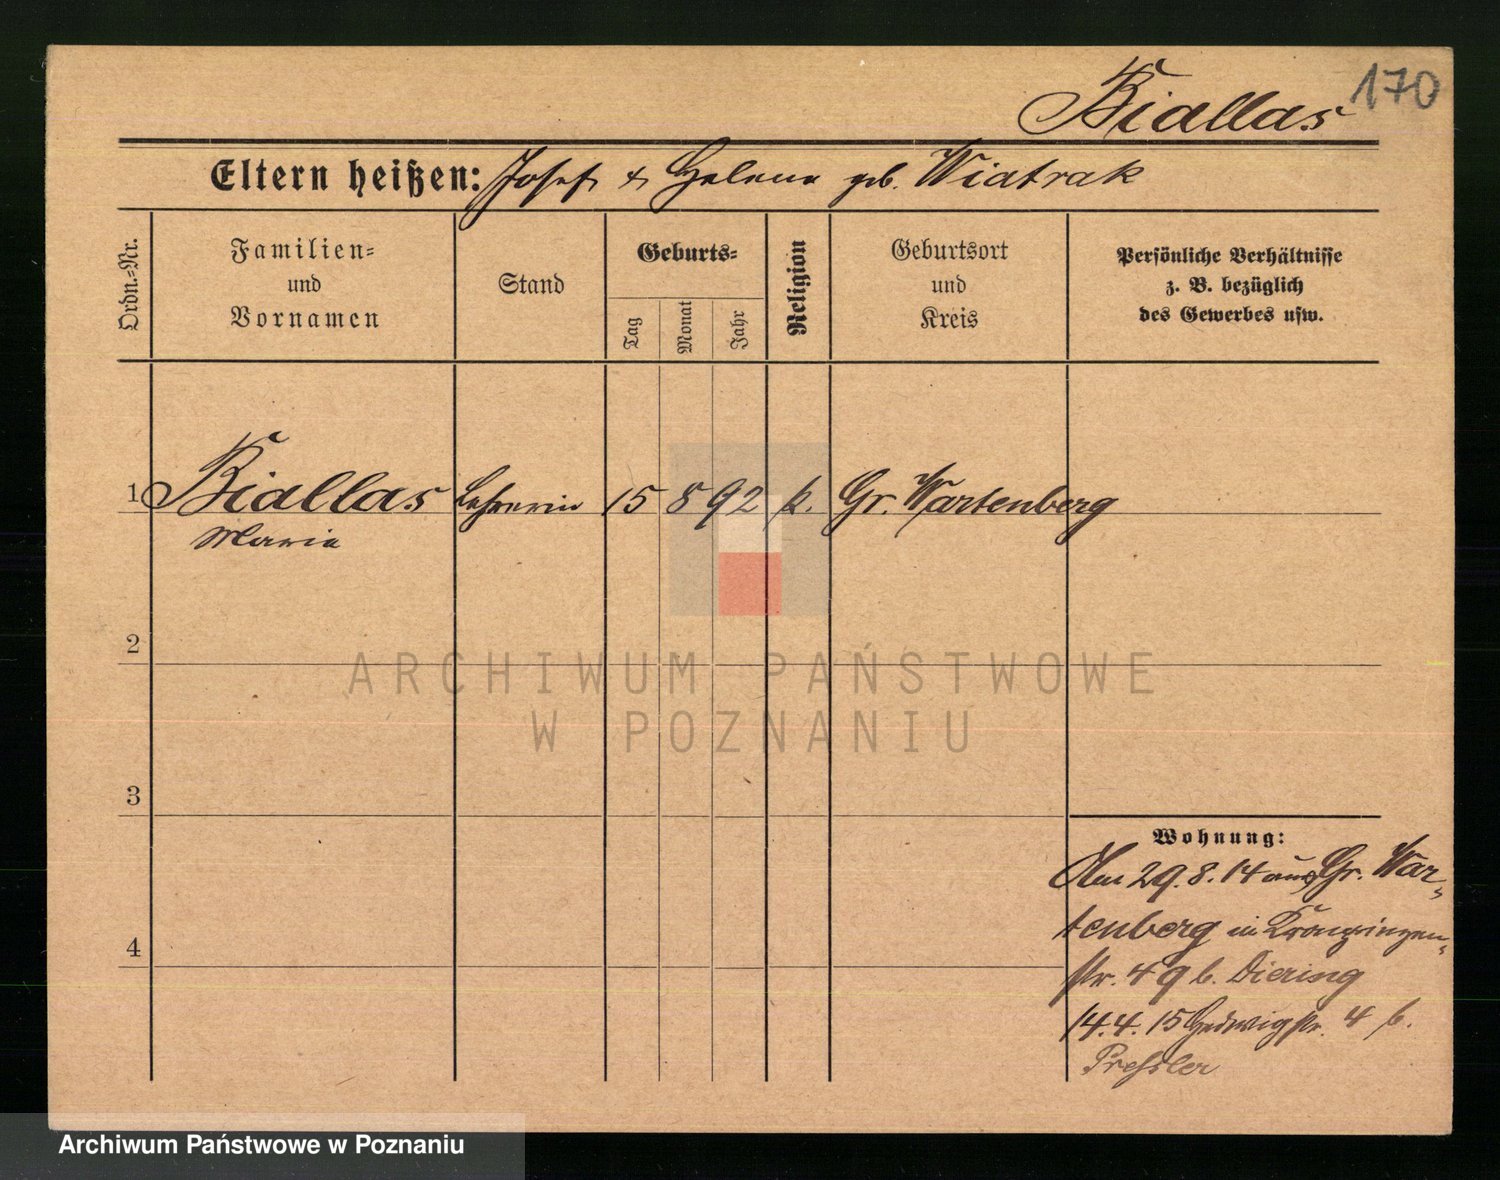 170
Biallas
Eltern heißen: Josef & Helene geb. Wiatrak
Ordn.=Nr.
Familien=
und
Vornamen
Stand
Geburts=
Tag
Monat
Jahr
Religion
Geburtsort
und
Kreis
Persönliche Verhältnisse
z. B. bezüglich
des Gewerbes usw.
1 Biallas Lehrerin 15 8 92 k. Gr. Wartenberg
Maria
2
ARCHIWUM PAŃSTWOWE
W POZNANIU
3
Wohnung:
Am 29.8.14 aus Gr. War-
4
tenberg in Kronprinzen-
str. 49 b. Diering
14.4.15 Hedwigstr. 4 b.
Pressler
Archiwum Państwowe w Poznaniu